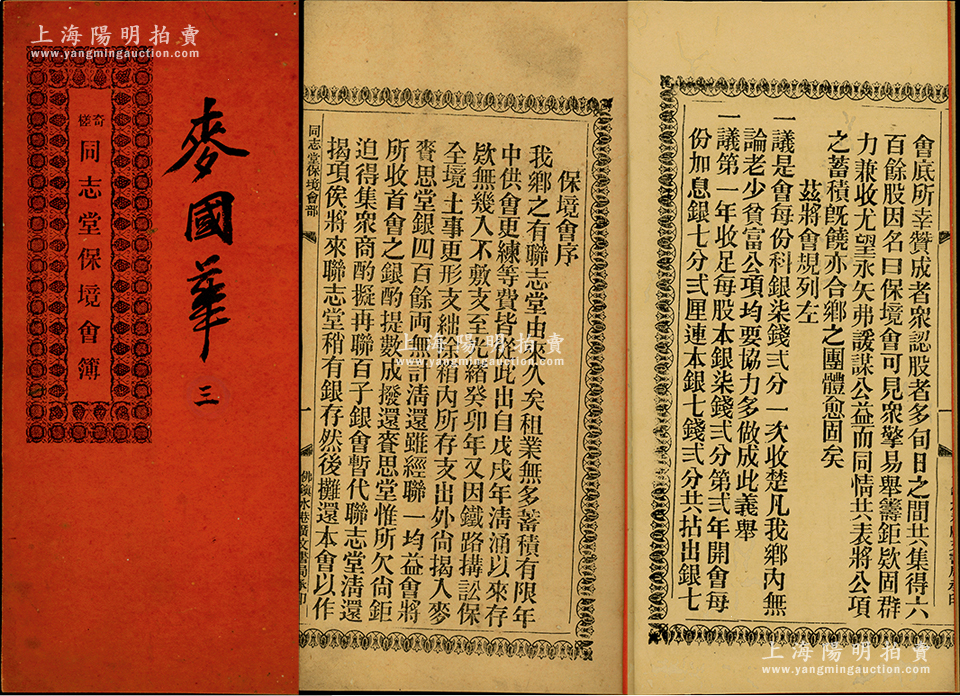 上海陽明拍賣
www.yangmingauction.com
奇
槎
同志堂保境會簿
麥國華
三
保境會序
我鄉之有聯志堂由來久矣租業無多蓄積有限年
中供會更練等費皆從此出自戊戌年清涌以來存
欵無幾入不敷支至光緒癸卯年又因鐵路搆訟保
全境土事更形支絀除箱内所存支出外尙揭入麥
賚思堂銀四百餘両無計淸還雖經聯一均益會將
所收首會之銀酌提數成撥還賚思堂惟所欠尙鉅
迫得集衆商酌擬再聯百子銀會暫代聯志堂淸還
揭項俟將來聯志堂稍有銀存然後攤還本會以作
同志堂保境會部
一
佛鎭水巷廣文書局承印
會底所幸贊成者衆認股者多旬日之間共集得六
百餘股因名曰保境會可見衆擎易舉籌鉅欵固群
力兼收尤望永矢弗諼謀公益而同情共表將公項
之蓄積旣饒亦合鄉之團體愈固矣
茲將會規列左
一議是會每份科銀柒錢弍分一次收楚凡我鄉内無
論老少貧富公項均要協力多做成此義舉
一議第一年收足每股本銀柒錢弍分第弍年開會每
份加息銀七分弍厘連本銀七錢弍分共拈出銀七
上海陽明拍賣
www.yangmingauction.com